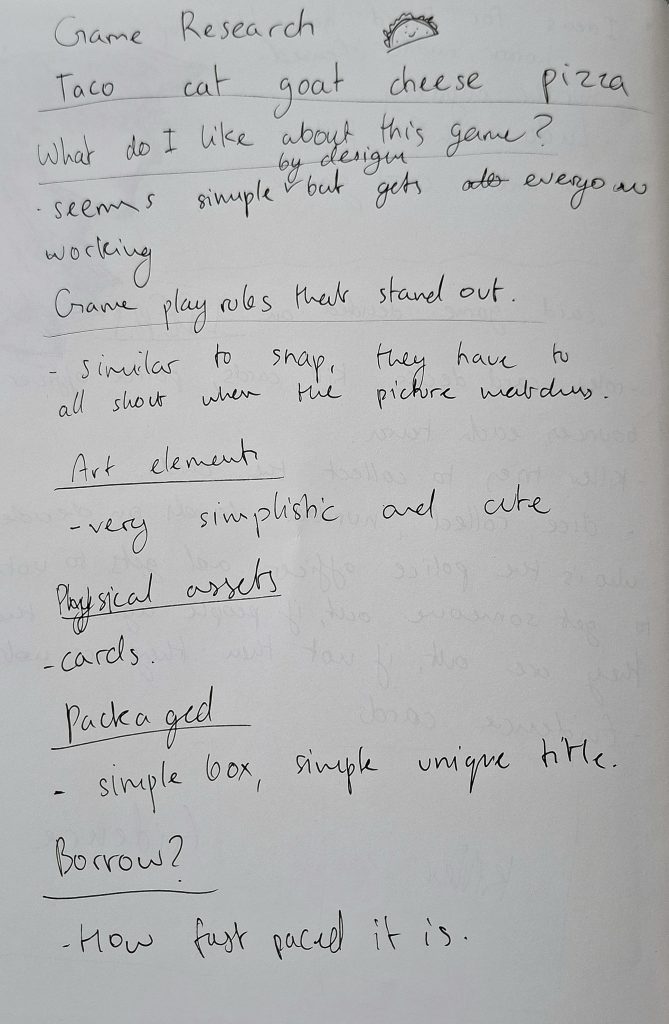 Game Research
Taco cat goat cheese pizza
What do I like about this game?
by design
· seems simple but gets everyone
working
Game play rules that stand out.
- similar to snap, they have to
all shout when the picture matches.
Art elements
- very simplistic and cute
Physical assets
- cards.
Packaged
- simple box, simple unique title.
Borrow?
- How fast paced it is.